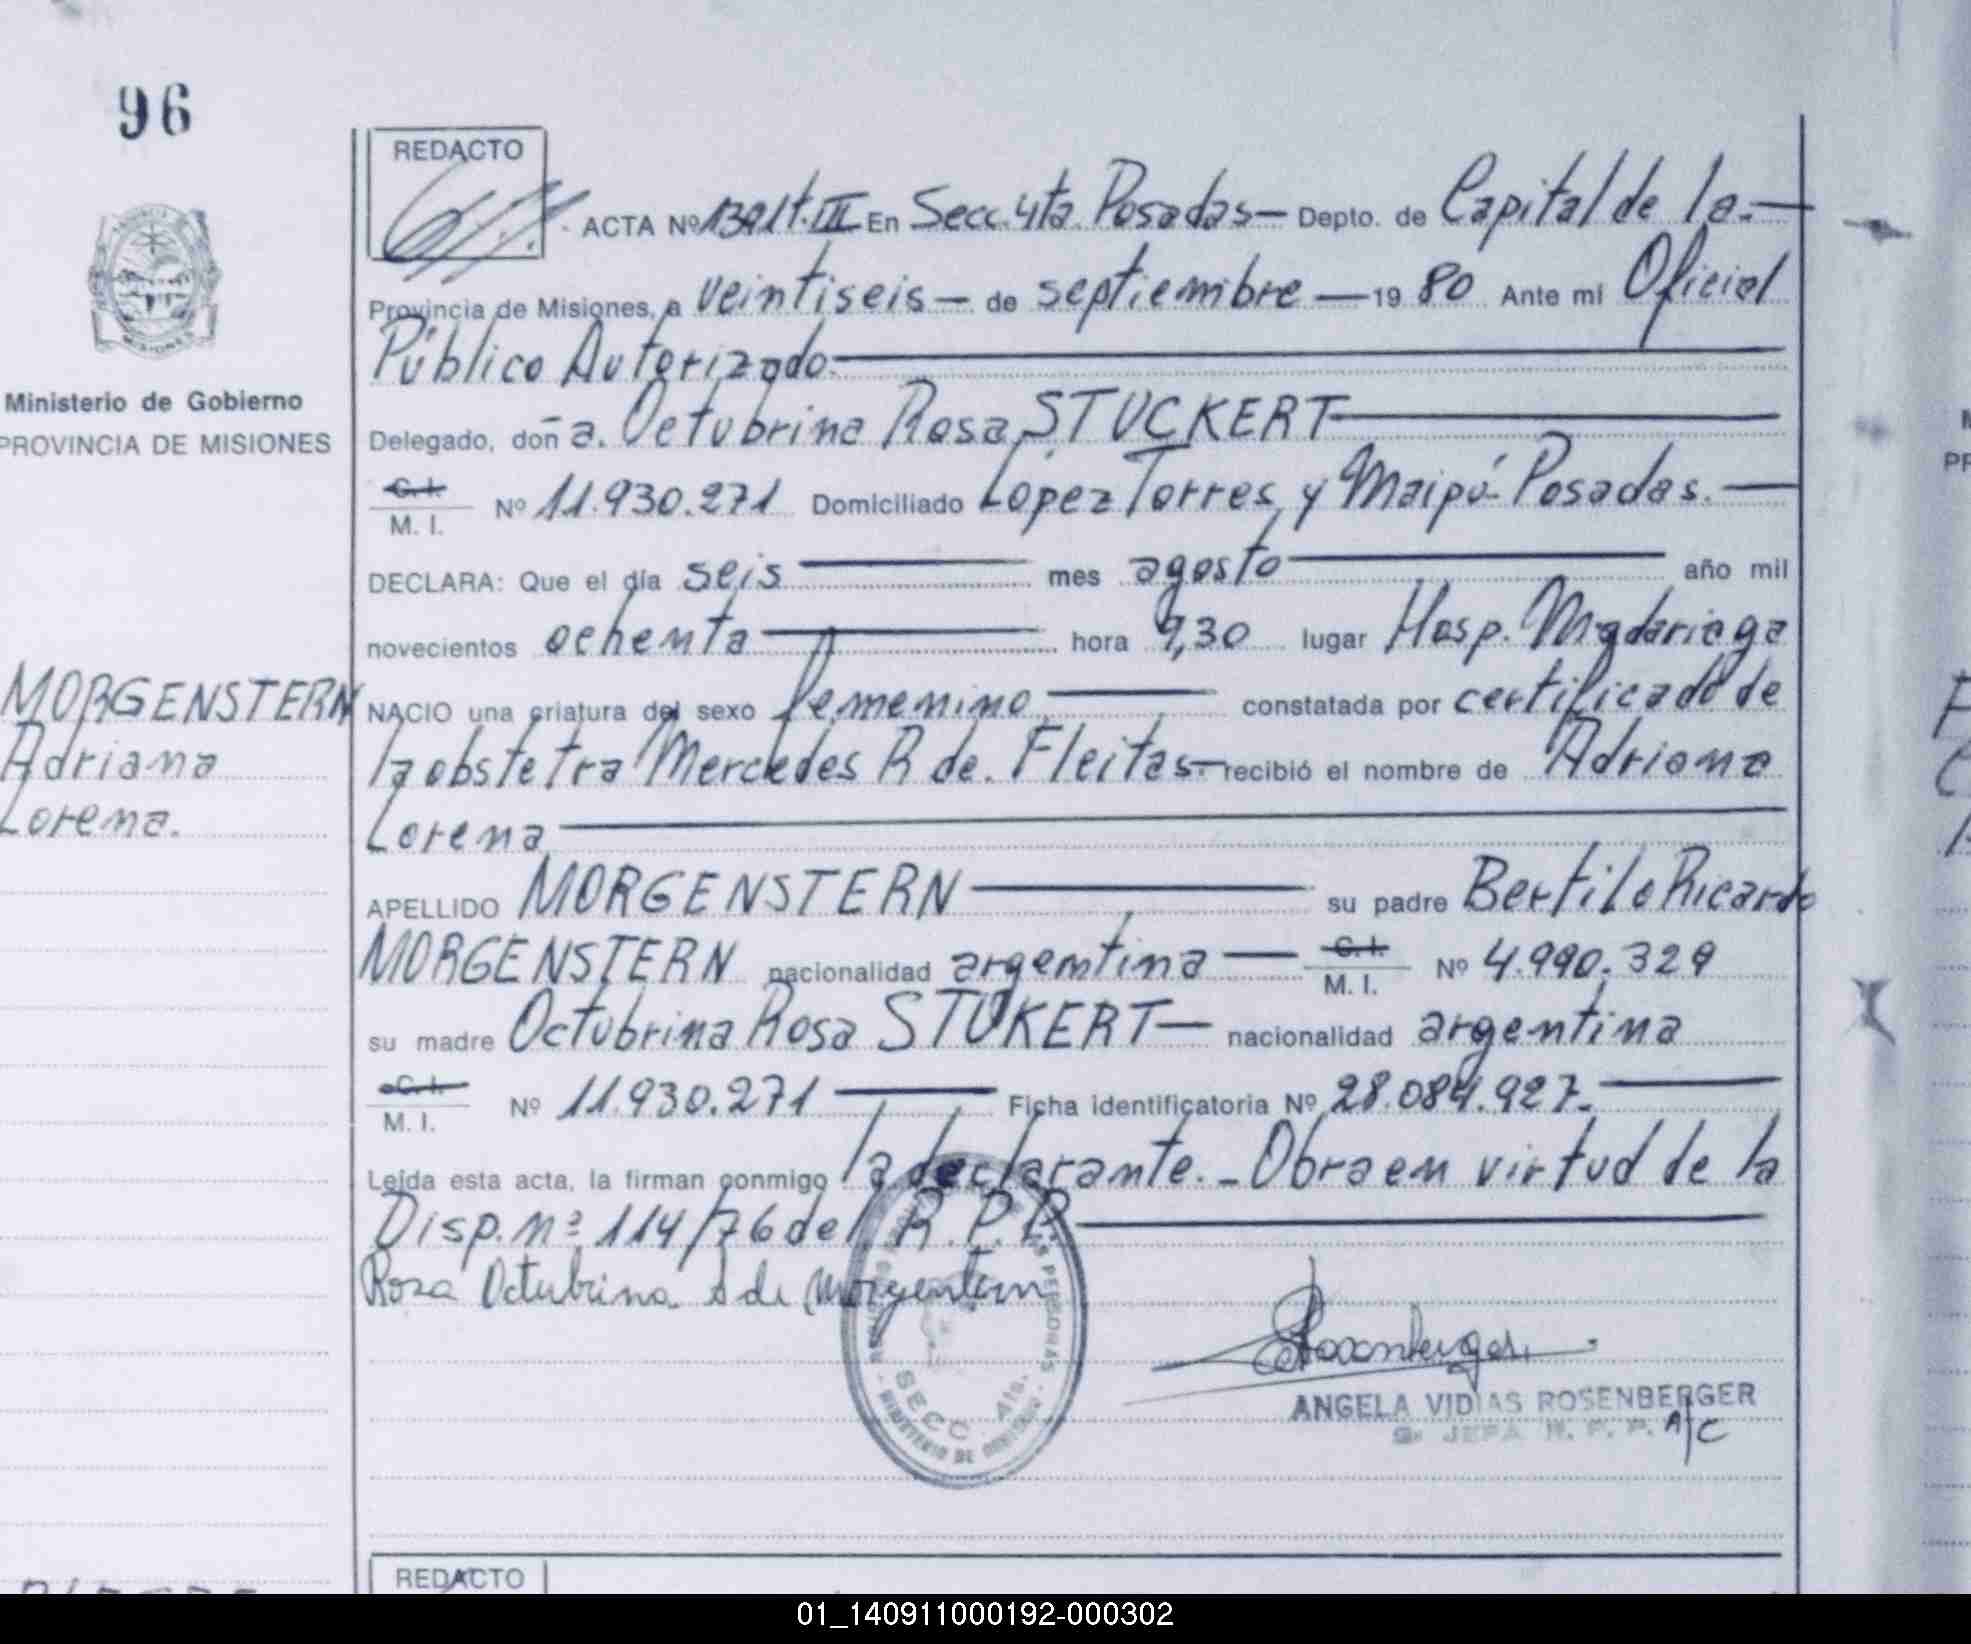 96
REDACTO
ACTA Nº 1391 t. III En Secc. 4ta. Posadas — Depto. de Capital de la. —
Provincia de Misiones, a veintiseis — de septiembre — 19 80 Ante mi Oficial
Público Autorizado.
Ministerio de Gobierno
PROVINCIA DE MISIONES
Delegado, don a. Octubrina Rosa STUCKERT
C. I.
M. I. Nº 11.930.271 Domiciliado López Torres y Maipú - Posadas. —
DECLARA: Que el día seis mes agosto año mil
novecientos ochenta hora 9,30 lugar Hosp. Madariaga
MORGENSTERN
Adriana
Lorena.
NACIO una criatura del sexo femenino constatada por certificado de
la obstetra Mercedes R de. Fleitas.— recibió el nombre de Adriana
Lorena
APELLIDO MORGENSTERN su padre Bertilo Ricardo
MORGENSTERN nacionalidad argentina — C. I.
M. I. Nº 4.990.329
su madre Octubrina Rosa STUKERT — nacionalidad argentina
C. I.
M. I. Nº 11.930.271 Ficha identificatoria Nº 28.084.927.
Leída esta acta, la firman conmigo la declarante. _ Obra en virtud de la
Disp. nº 114/76 del R. P. P.
Rosa Octubrina S de Morgenstern
SECC. 4ta.
MINISTERIO DE GOBIERNO
ANGELA VIDIAS ROSENBERGER
JEFA R. P. P. A/C
REDACTO
01_140911000192-000302